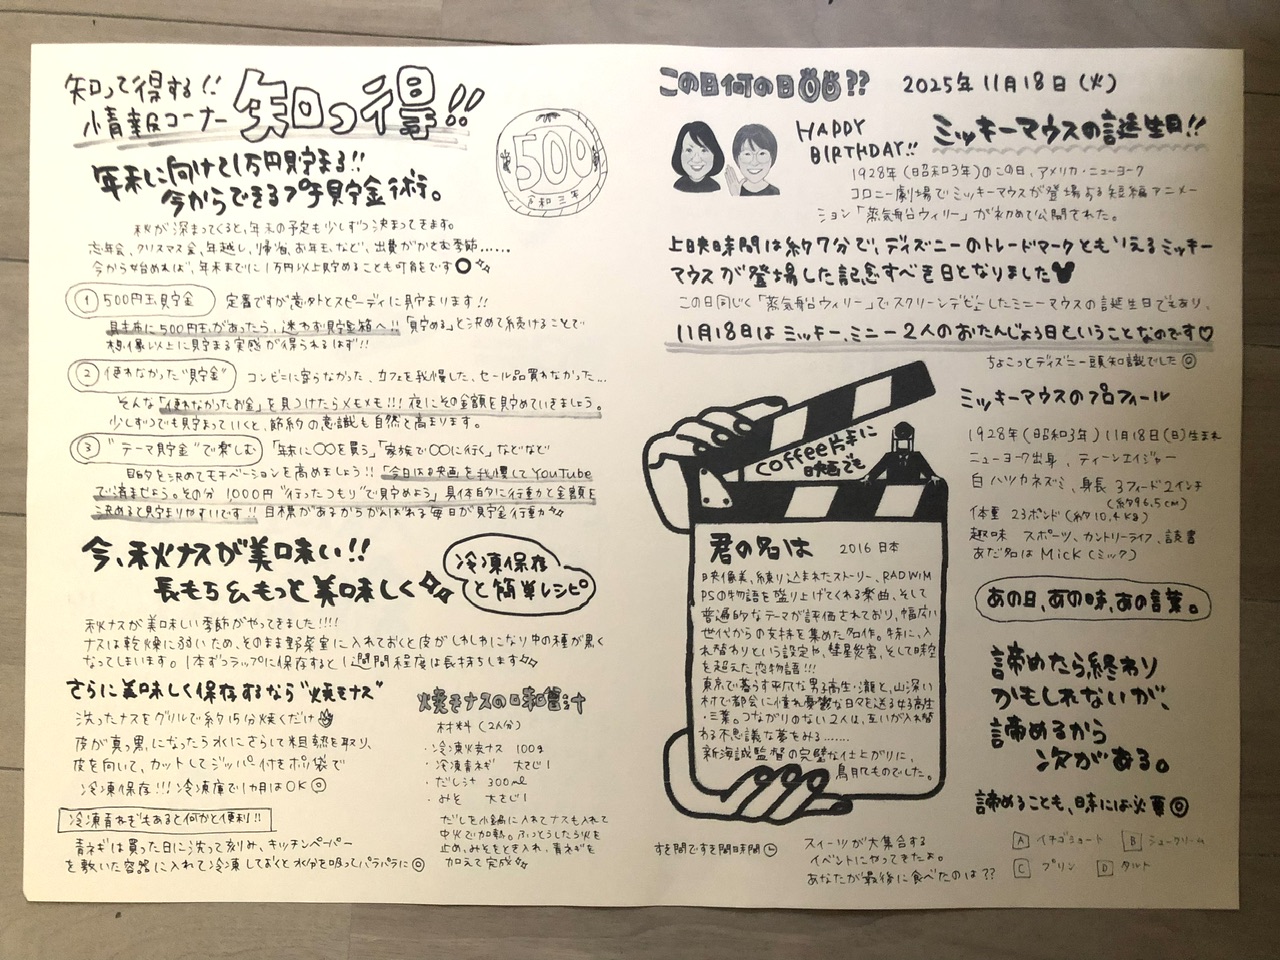 知って得する!!
情報コーナー
知っ得!!
500
令和三年
年末に向けて1万円貯まる!!
今からできるプチ貯金術。
秋が深まってくると、年末の予定も少しずつ決まってきます。
忘年会、クリスマス会、年越し、帰省、お年玉など、出費がかさむ季節……
今から始めれば、年末までに1万円以上貯めることも可能です
① 500円玉貯金 定番ですが意外とスピーディに貯まります!!
財布に500円玉があったら、迷わず貯金箱へ!!「貯める」と決めて続けることで
想像以上に貯まる実感が得られるはず!!
② 使わなかった"貯金" コンビニに寄らなかった、カフェを我慢した、セール品買わなかった…
そんな「使わなかったお金」を見つけたらメモメモ!!! 夜にその金額を貯めていきましょう。
少しずつでも貯まっていくと、節約の意識も自然と高まります。
③ "テーマ貯金"で楽しむ 「年末に〇〇を買う」「家族で〇〇に行く」などなど
目的を決めてモチベーションを高めましょう!!「今日は映画を我慢してYouTube
で済ませよう。その分1000円"行ったつもり"で貯めよう」具体的に行動と金額を
決めると貯まりやすいです!! 目標があるからがんばれる毎日が貯金行動
今、秋ナスが美味い!!
長もち&もっと美味しく
冷凍保存
と簡単レシピ
秋ナスが美味しい季節がやってきました!!!!
ナスは乾燥に弱いため、そのまま野菜室に入れておくと皮がしわしわになり中の種が黒く
なってしまいます。1本ずつラップに保存すると1週間程度は長持ちします
さらに美味しく保存するなら"焼きナス"
洗ったナスをグリルで約15分焼くだけ
皮が真っ黒になったら水にさらして粗熱を取り、
皮を向いて、カットしてジッパー付きポリ袋で
冷凍保存!!! 冷凍庫で1カ月はOK
冷凍青ねぎもあると何かと便利!!
青ネギは買った日に洗って刻み、キッチンペーパー
を敷いた容器に入れて冷凍しておくと水分を吸ってパラパラに
焼きナスの味噌汁
材料(2人分)
・冷凍焼ナス 100g
・冷凍青ネギ 大さじ1
・だし汁 300ml
・みそ 大さじ1
だしを小鍋に入れてナスも入れて
中火で加熱。ふっとうしたら火を
止め、みそをとき入れ、青ネギを
加えて完成
この日何の日??
2025年11月18日(火)
HAPPY
BIRTHDAY!!
ミッキーマウスの誕生日!!
1928年(昭和3年)のこの日、アメリカ・ニューヨーク
コロニー劇場でミッキーマウスが登場する短編アニメー
ション「蒸気船ウィリー」が初めて公開された。
上映時間は約7分で、ディズニーのトレードマークともいえるミッキー
マウスが登場した記念すべき日となりました
この日同じく「蒸気船ウィリー」でスクリーンデビューしたミニーマウスの誕生日でもあり、
11月18日はミッキー、ミニー2人のおたんじょう日ということなのです♡
ちょこっとディズニー豆知識でした
coffee片手に
映画でも
君の名は 2016 日本
映像美、練り込まれたストーリー、RADWIM
PSの物語を盛り上げてくれる楽曲、そして
普遍的なテーマが評価されており、幅広い
世代からの支持を集めた名作。特に、入
れ替わりという設定や、彗星災害、そして時空
を超えた恋物語!!!
東京で暮らす平凡な男子高生・瀧と、山深い
村で都会に憧れ憂鬱な日々を送る女子高生
・三葉。つながりのない2人は、互いが入れ替
わる不思議な夢をみる………
新海誠監督の完璧な仕上がりに、
鳥肌ものでした。
ミッキーマウスのプロフィール
1928年(昭和3年)11月18日(日)生まれ
ニューヨーク出身、ティーンエイジャー
白ハツカネズミ、身長 3フィート2インチ
(約96.5cm)
体重 23ポンド(約10.4kg)
趣味 スポーツ、カントリーライフ、読書
あだ名はMick(ミック)
あの日、あの時、あの言葉。
諦めたら終わり
かもしれないが、
諦めるから
次がある。
諦めることも、時には必要
すき間ですき間時間
スイーツが大集合する
イベントにやってきたよ。
あなたが最後に食べたのは??
A イチゴショート B シュークリーム
C プリン D タルト